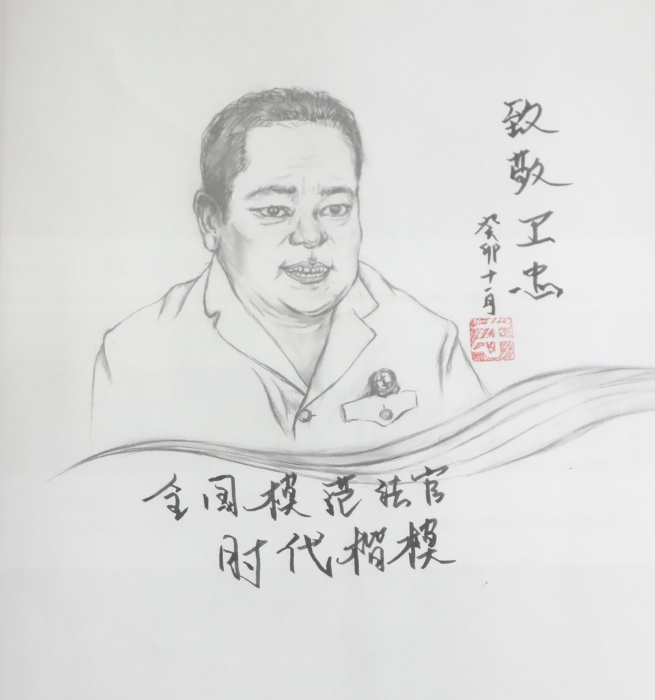 致敬卫忠
癸卯十一月
全国模范法官
时代楷模